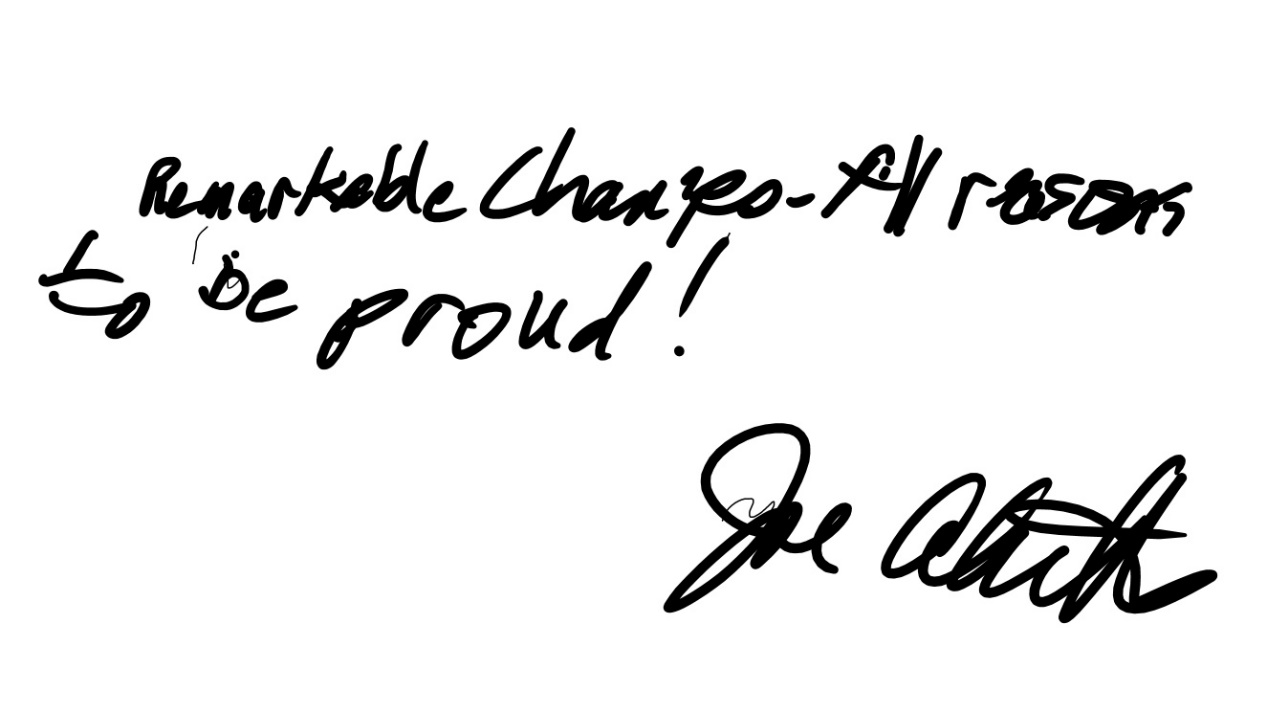 Remarkable Changes - All reasons
to be proud!
Joe